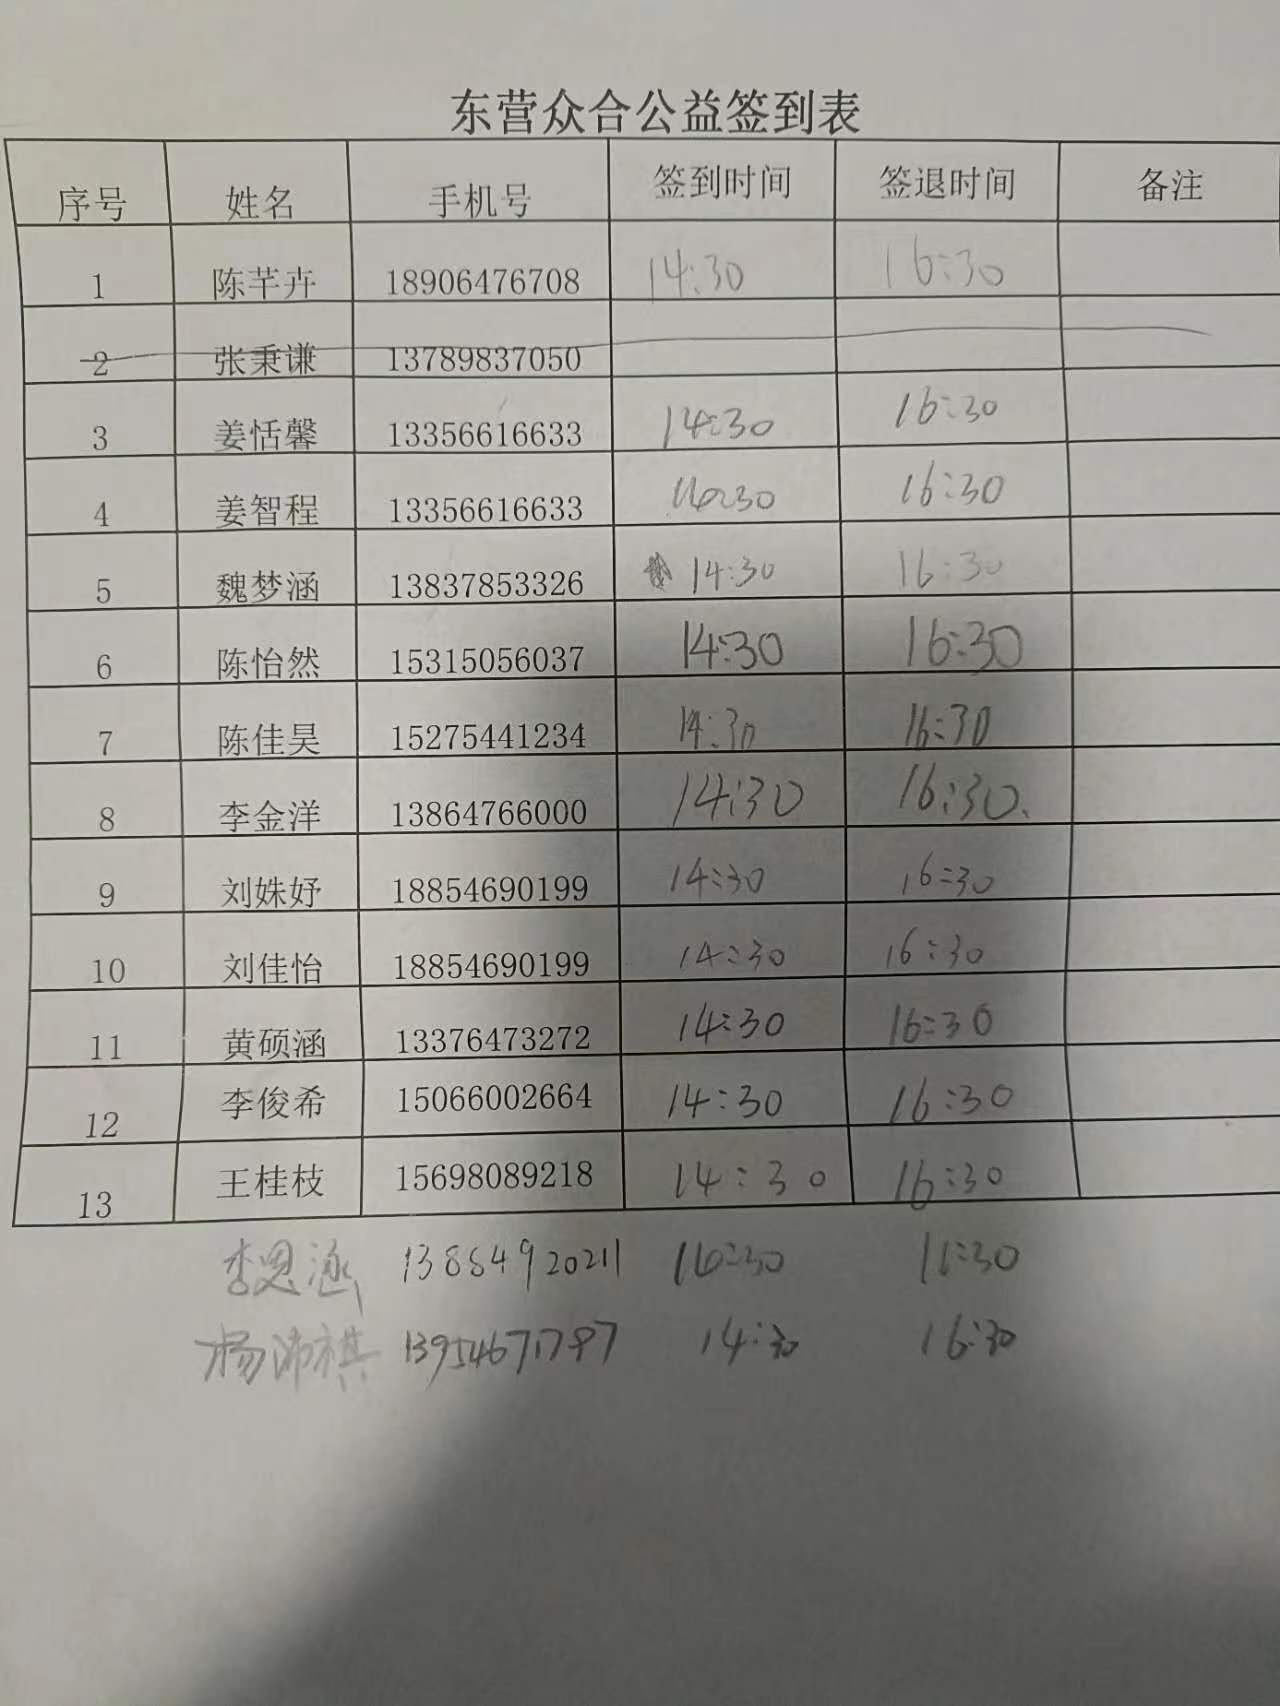 东营众合公益签到表
序号 姓名 手机号 签到时间 签退时间 备注
1 陈芊卉 18906476708 14:30 16:30
2 张秉谦 13789837050
3 姜恬馨 13356616633 14:30 16:30
4 姜智程 13356616633 14:30 16:30
5 魏梦涵 13837853326 14:30 16:30
6 陈怡然 15315056037 14:30 16:30
7 陈佳昊 15275441234 14:30 16:30
8 李金洋 13864766000 14:30 16:30
9 刘姝妤 18854690199 14:30 16:30
10 刘佳怡 18854690199 14:30 16:30
11 黄硕涵 13376473272 14:30 16:30
12 李俊希 15066002664 14:30 16:30
13 王桂枝 15698089218 14:30 16:30
李恩涵 14:30 16:30
杨沛祺 14:30 16:30